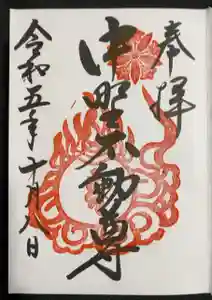 奉拝
中野不動尊
令和五年十月日